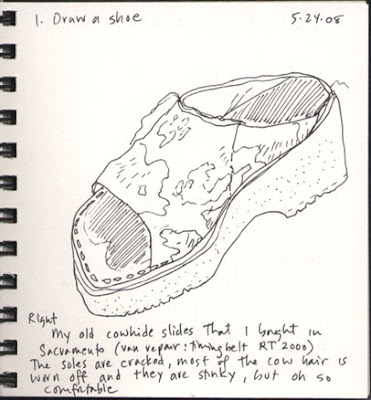 1. Draw a shoe 5.24.08
Right
My old cowhide slides that I bought in
Sacramento (van repair: timing belt RT 2000)
The soles are cracked, most of the cow hair is
worn off and they are stinky, but oh so
comfortable